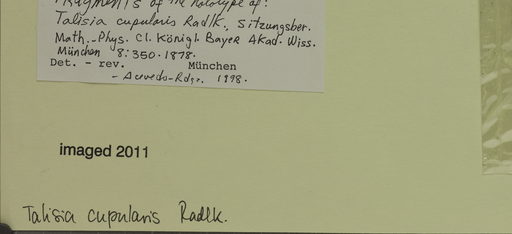 Fragments of the holotype of:
Talisia cupularis Radlk., Sitzungsber.
Math.-Phys. Cl. Königl. Bayer Akad. Wiss.
München 8:350.1878.
Det. - rev. München
- Acevedo-Rdgz. 1998.
imaged 2011
Talisia cupularis Radlk.